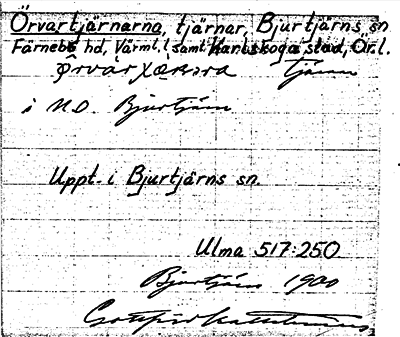 Örvartjärnarna, tjärnar, Bjurtjärns sn
Färnebo hd, Värml. l samt Karlskoga stad, Ör. l.
tjärn
i N.O. Bjurtjärn
Uppt. i Bjurtjärns sn.
Ulma 517:250
Bjurtjärn 1900